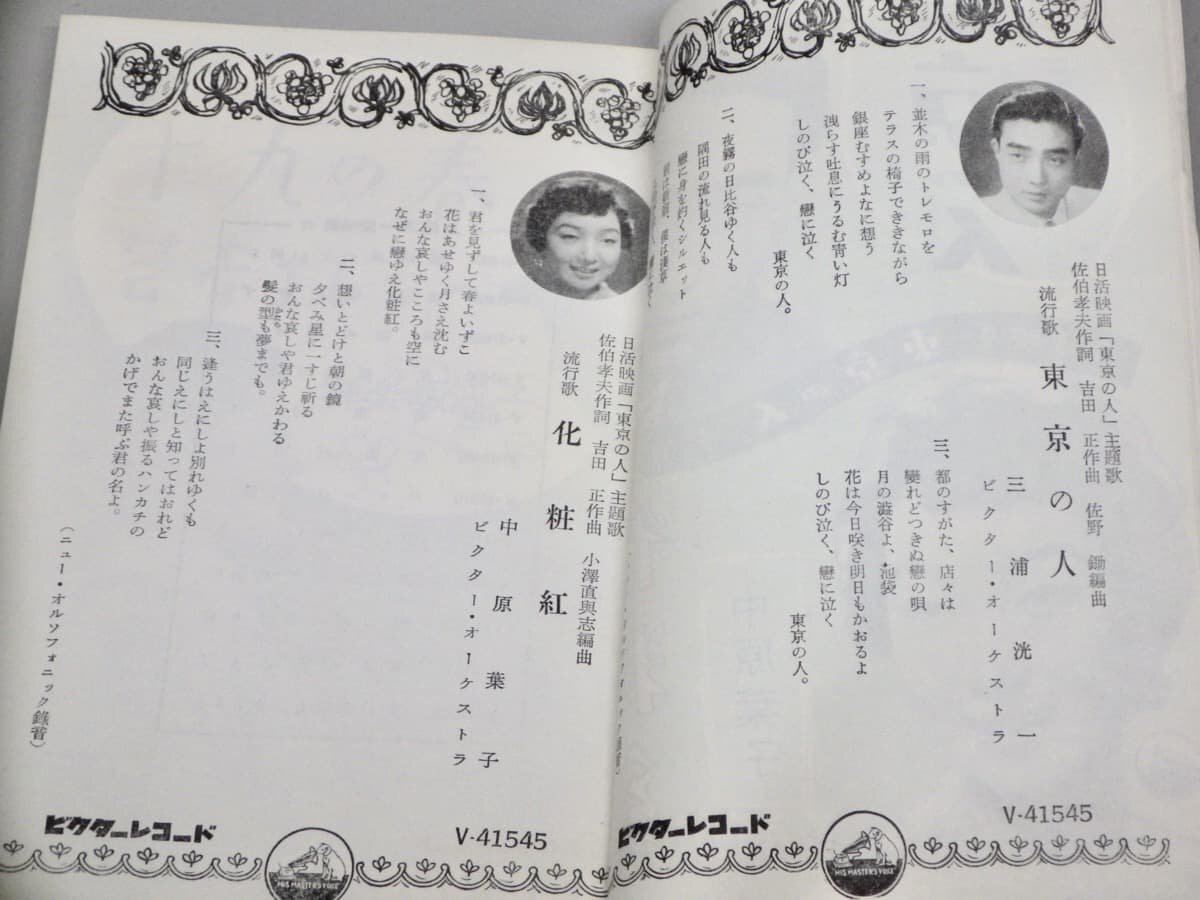 日活映画「東京の人」主題歌
佐伯孝夫作詞　吉田　正作曲　佐野　鋤編曲
流行歌　東京の人
三浦洸一
ビクター・オーケストラ
一、並木の雨のトレモロを
テラスの椅子でききながら
銀座むすめよなに想う
洩らす吐息にうるむ靑い灯
しのび泣く、戀に泣く
東京の人。
二、夜霧の日比谷ゆく人も
隅田の流れ見る人も
戀に身を灼くシルエット
三、都のすがた、店々は
變れどつきぬ戀の唄
月の澁谷よ、池袋
花は今日咲き明日もかおるよ
しのび泣く、戀に泣く
東京の人。
V-41545
ビクターレコード
HIS MASTER'S VOICE
日活映画「東京の人」主題歌
佐伯孝夫作詞　吉田　正作曲　小澤直與志編曲
流行歌　化粧紅
中原葉子
ビクター・オーケストラ
一、君を見ずして春よいずこ
花はあせゆく月さえ沈む
おんな哀しやこころも空に
なぜに戀ゆえ化粧紅。
二、想いとどけと朝の鏡
夕べみ星に一すじ祈る
おんな哀しや君ゆえかわる
髪の型も夢までも。
三、逢うはえにしよ別れゆくも
同じえにしと知ってはおれど
おんな哀しや振るハンカチの
かげでまた呼ぶ君の名よ。
（ニュー・オルソフォニック錄音）
V-41545
ビクターレコード
HIS MASTER'S VOICE